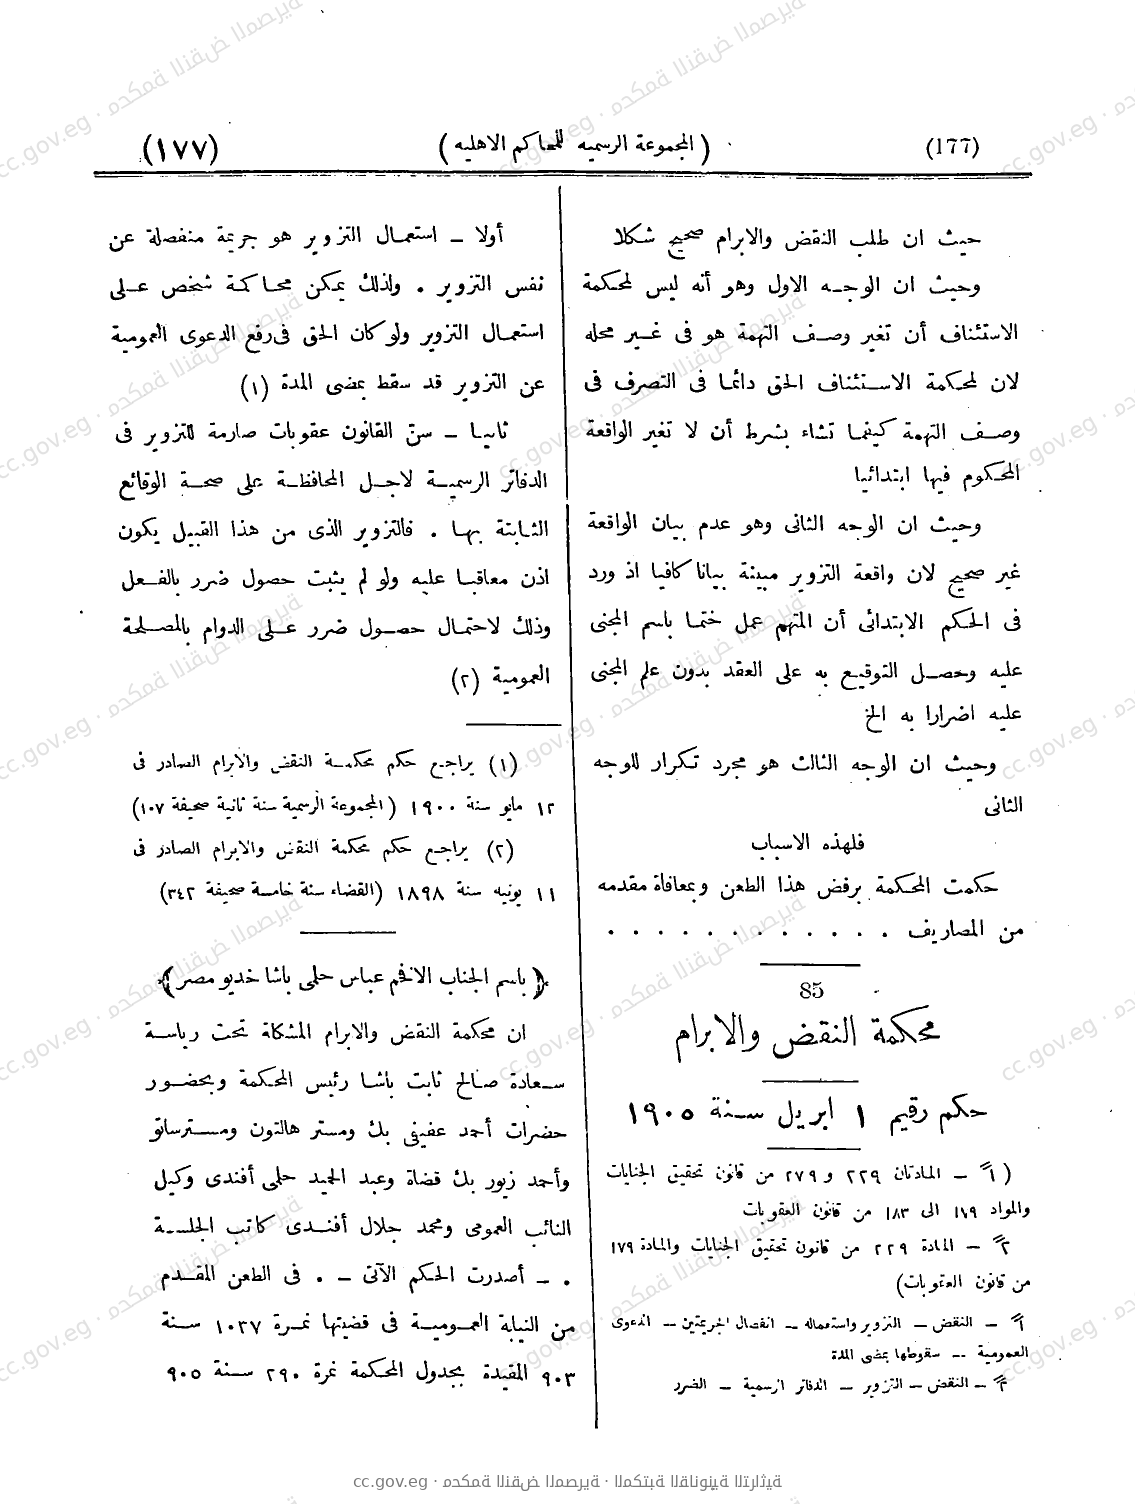 (177)
( المجموعة الرسميه للمحاكم الاهليه )
(١٧٧)
حيث ان طلب النقض والابرام صحيح شكلا
وحيث ان الوجه الاول وهو أنه ليس لمحكمة
الاستئناف أن تغير وصف التهمة هو فى غير محله
لان لمحكمة الاستئناف الحق دائما فى التصرف فى
وصف التهمة كيفما تشاء بشرط أن لا تغير الواقعة
المحكوم فيها ابتدائيا
وحيث ان الوجه الثانى وهو عدم بيان الواقعة
غير صحيح لان واقعة التزوير مبينة بيانا كافيا اذ ورد
فى الحكم الابتدائى أن المتهم عمل ختما باسم المجنى
عليه وحصل التوقيع به على العقد بدون علم المجنى
عليه اضرارا به الخ
وحيث ان الوجه الثالث هو مجرد تكرار للوجه
الثانى
فلهذه الاسباب
حكمت المحكمة برفض هذا الطعن وبمعافاة مقدمه
من المصاريف . . . . . . . . . . . .
85
محكمة النقض والابرام
حكم رقيم ١ ابريل سنة ١٩٠٥
( ١ً — المادتان ٢٢٩ و ٢٧٩ من قانون تحقيق الجنايات
والمواد ١٧٩ الى ١٨٣ من قانون العقوبات
٢ً — المادة ٢٢٩ من قانون تحقيق الجنايات والمادة ١٧٩
من قانون العقوبات)
١ً — النقض — التزوير واستعماله — انفصال الجريمتين — الدعوى
العمومية — سقوطها بمضى المدة
٢ً — النقض — التزوير — الدفاتر الرسمية — الضرر
أولا — استعمال التزوير هو جريمة منفصلة عن
نفس التزوير . ولذلك يمكن محاكمة شخص على
استعمال التزوير ولو كان الحق فى رفع الدعوى العمومية
عن التزوير قد سقط بمضى المدة (١)
ثانيا — سنّ القانون عقوبات صارمة للتزوير فى
الدفاتر الرسمية لاجل المحافظة على صحة الوقائع
الثابتة بها . فالتزوير الذى من هذا القبيل يكون
اذن معاقبا عليه ولو لم يثبت حصول ضرر بالفعل
وذلك لاحتمال حصول ضرر على الدوام بالمصلحة
العمومية (٢)
(١) يراجع حكم محكمة النقض والابرام الصادر فى
١٢ مايو سنة ١٩٠٠ (المجموعة الرسمية سنة ثانية صحيفة ١٠٧)
(٢) يراجع حكم محكمة النقض والابرام الصادر فى
١١ يونيه سنة ١٨٩٨ (القضاء سنة خامسة صحيفة ٣٤٢)
﴿ باسم الجناب الافخم عباس حلمى باشا خديو مصر ﴾
ان محكمة النقض والابرام المشكلة تحت رياسة
سعادة صالح ثابت باشا رئيس المحكمة وبحضور
حضرات أحمد عفيفى بك ومستر هالتون ومسترساتو
وأحمد زيور بك قضاة وعبد الحميد حلمى أفندى وكيل
النائب العمومى ومحمد جلال أفندى كاتب الجلسة
. — أصدرت الحكم الآتى — . فى الطعن المقدم
من النيابة العمومية فى قضيتها نمرة ١٠٣٧ سنة
٩٠٣ المقيدة بجدول المحكمة نمرة ٢٩٠ سنة ٩٠٥
cc.gov.eg · محكمة النقض المصرية · المكتبة القانونية التراثية